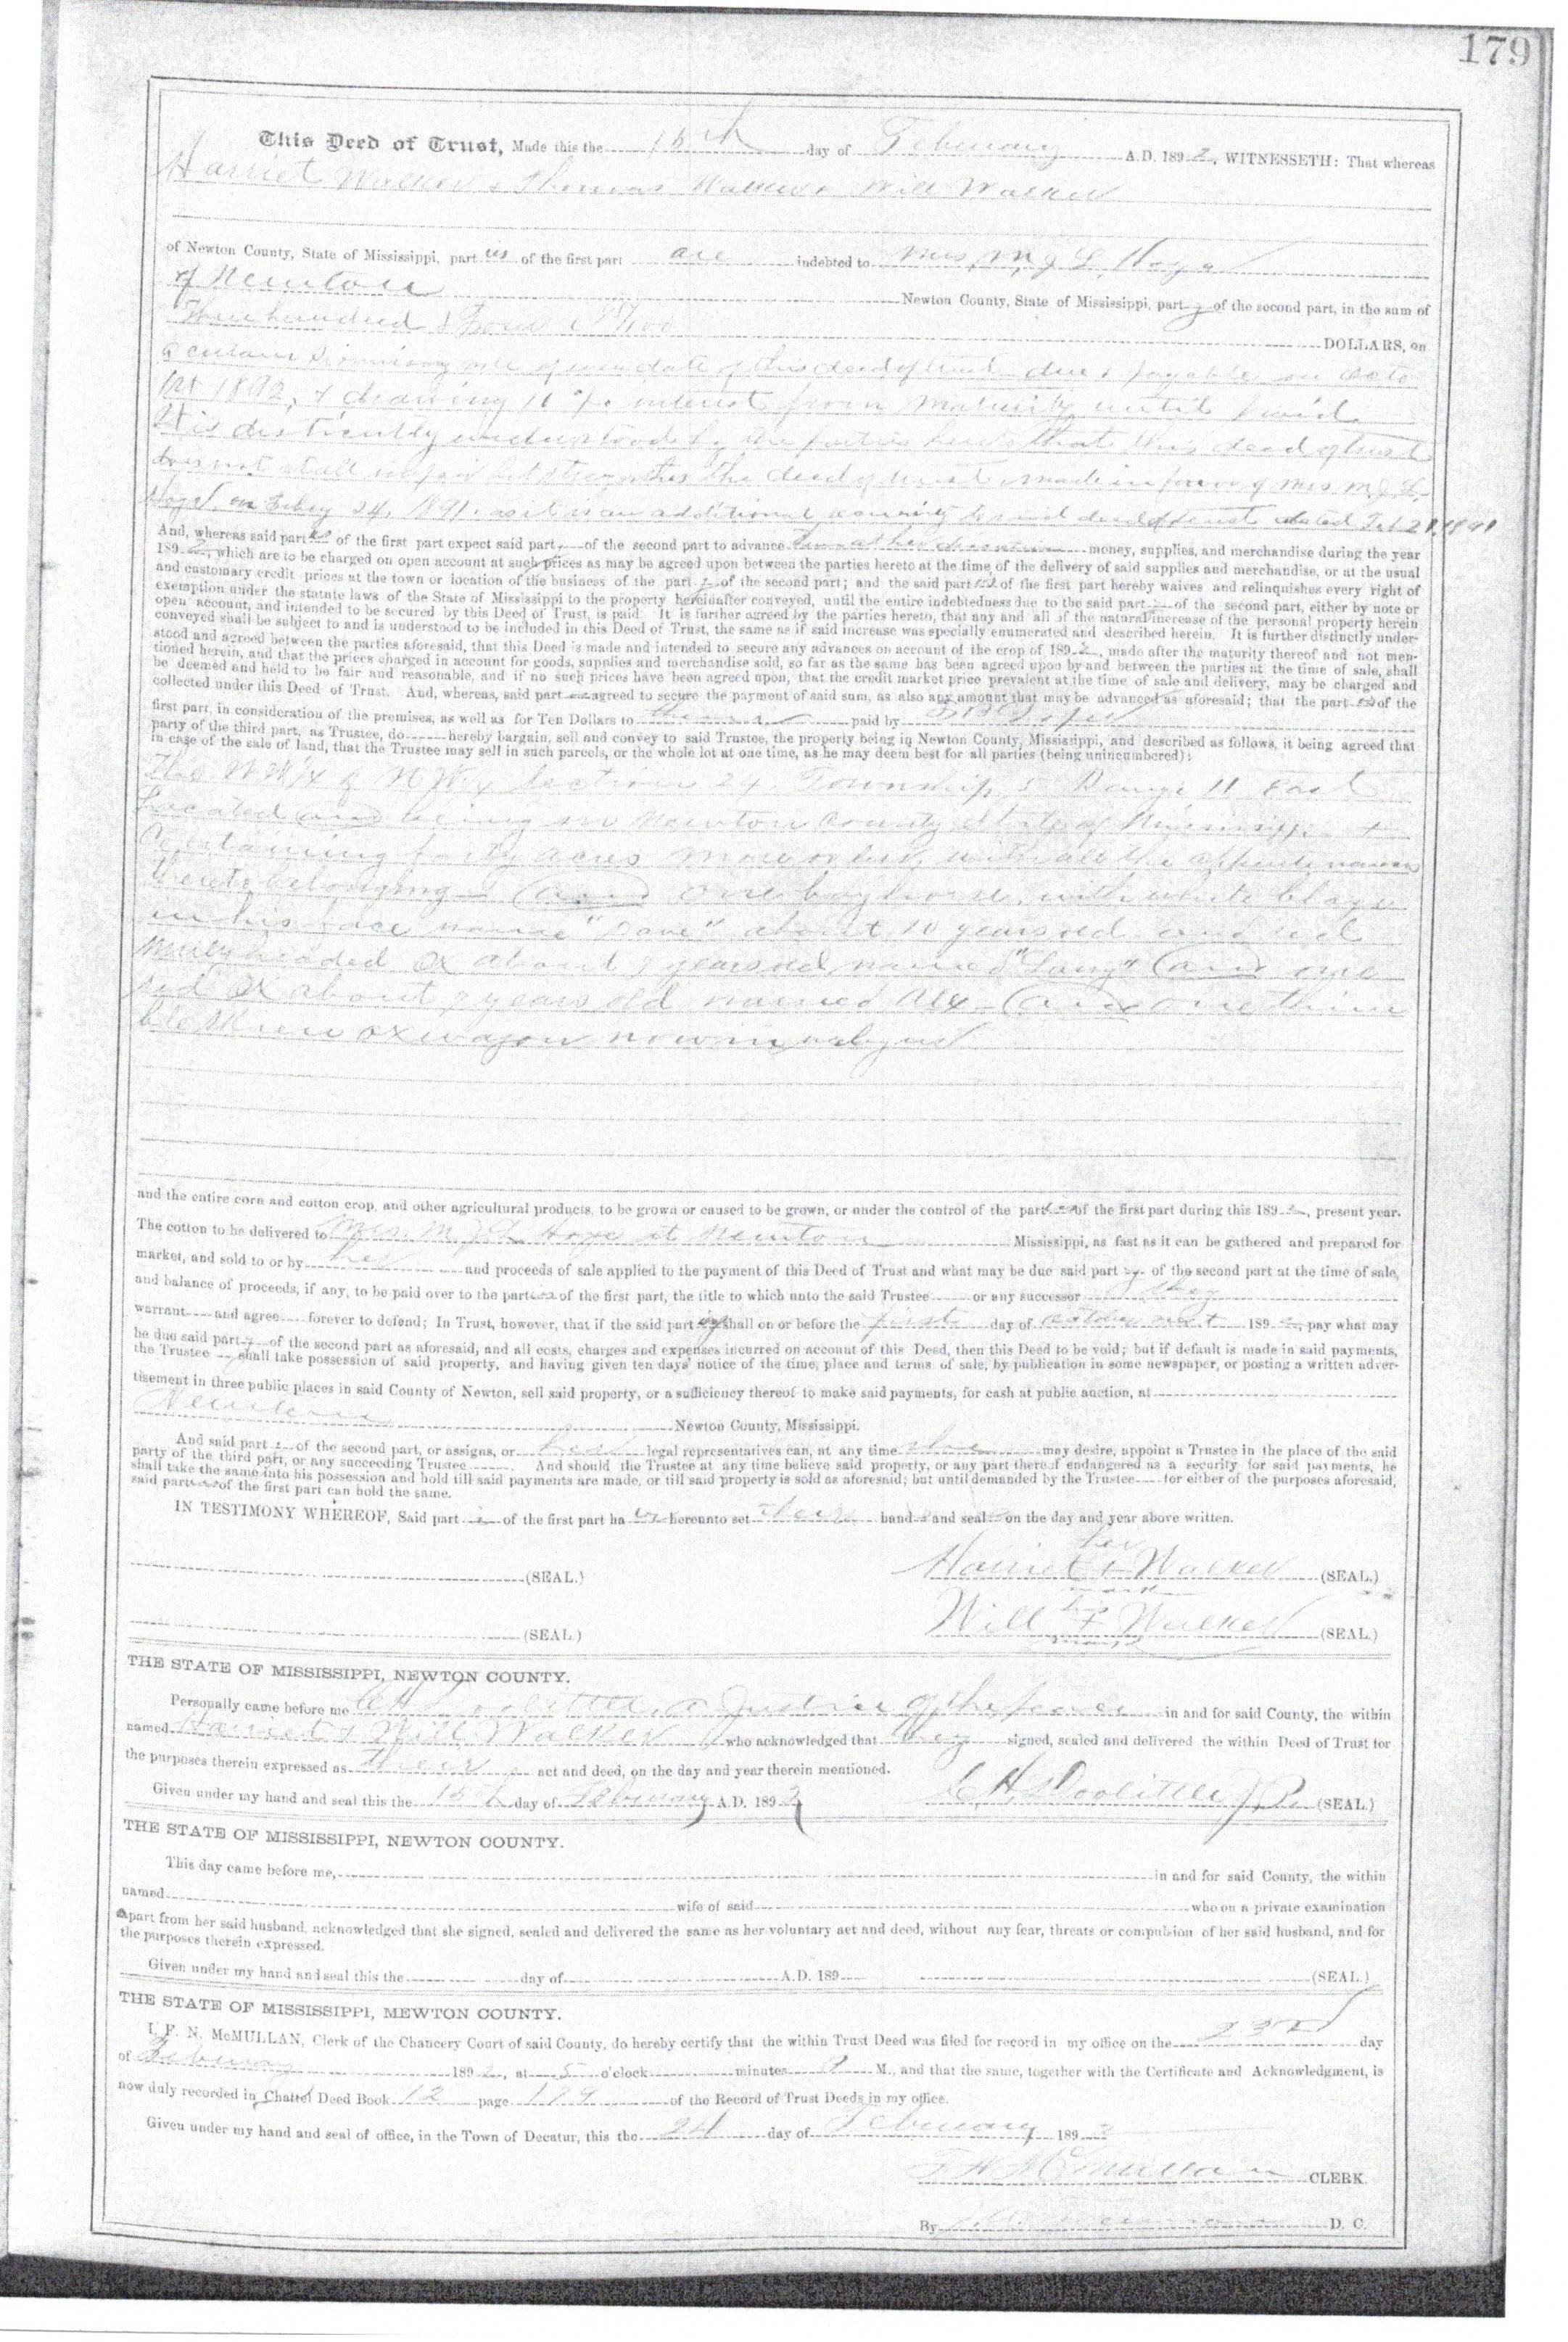 179
This Deed of Trust, Made this the 15th day of February A.D. 1892, WITNESSETH: That whereas
Harriet Walker & Thomas Walker & Will Walker
of Newton County, State of Mississippi, part ies of the first part are indebted to Mrs. M. J. L. Hoye
of Newton Newton County, State of Mississippi, part y of the second part, in the sum of
Three hundred & four /100 DOLLARS, on
a certain promissory note of even date of this deed of trust due & payable on Octo
1st 1892, & drawing 10 % interest from maturity until paid
It is distinctly understood by the parties hereto that this deed of trust
does not at all impair but strengthens the deed of trust made in favor of Mrs M. J. L.
Hoye on Feby 24, 1891. as it is an additional security to said deed of trust dated Feb 21, 1891
And, whereas said part ies of the first part expect said part y of the second part to advance them at her discretion money, supplies, and merchandise during the year
1892, which are to be charged on open account at such prices as may be agreed upon between the parties hereto at the time of the delivery of said supplies and merchandise, or at the usual
and customary credit prices at the town or location of the business of the part y of the second part; and the said part ies of the first part hereby waives and relinquishes every right of
exemption under the statute laws of the State of Mississippi to the property hereinafter conveyed, until the entire indebtedness due to the said part y of the second part, either by note or
open account, and intended to be secured by this Deed of Trust, is paid. It is further agreed by the parties hereto, that any and all of the natural increase of the personal property herein
conveyed shall be subject to and is understood to be included in this Deed of Trust, the same as if said increase was specially enumerated and described herein. It is further distinctly under-
stood and agreed between the parties aforesaid, that this Deed is made and intended to secure any advances on account of the crop of 1892, made after the maturity thereof and not men-
tioned herein, and that the prices charged in account for goods, supplies and merchandise sold, so far as the same has been agreed upon by and between the parties at the time of sale, shall
be deemed and held to be fair and reasonable, and if no such prices have been agreed upon, that the credit market price prevalent at the time of sale and delivery, may be charged and
collected under this Deed of Trust. And, whereas, said part ies agreed to secure the payment of said sum, as also any amount that may be advanced as aforesaid; that the part ies of the
first part, in consideration of the premises, as well as for Ten Dollars to them paid by
party of the third part, as Trustee, do hereby bargain, sell and convey to said Trustee, the property being in Newton County, Mississippi, and described as follows, it being agreed that
in case of the sale of land, that the Trustee may sell in such parcels, or the whole lot at one time, as he may deem best for all parties (being unincumbered):
The NW¼ of NW¼ Section 24 Township 5 Range 11 East
Located and being in Newton County State of Mississippi &
Containing forty acres more or less, with all the appurtenances
thereto belonging & (and) one bay horse, with white blaze
in his face name "Dave" about 10 years old and red
muley headed ox about 9 years old named "Lany" (and) one
red ox about 9 years old named Alex (and) one thimble
skein ox wagon now in
and the entire corn and cotton crop, and other agricultural products, to be grown or caused to be grown, or under the control of the part ies of the first part during this 1892, present year.
The cotton to be delivered to Mrs. M. J. L. Hoye at Newton Mississippi, as fast as it can be gathered and prepared for
market, and sold to or by her and proceeds of sale applied to the payment of this Deed of Trust and what may be due said part y of the second part at the time of sale,
and balance of proceeds, if any, to be paid over to the part ies of the first part, the title to which unto the said Trustee or any successor they
warrant and agree forever to defend; In Trust, however, that if the said part ies shall on or before the first day of October next 1892, pay what may
be due said part y of the second part as aforesaid, and all costs, charges and expenses incurred on account of this Deed, then this Deed to be void; but if default is made in said payments,
the Trustee shall take possession of said property, and having given ten days' notice of the time, place and terms of sale, by publication in some newspaper, or posting a written adver-
tisement in three public places in said County of Newton, sell said property, or a sufficiency thereof to make said payments, for cash at public auction, at
Newton Newton County, Mississippi.
And said part y of the second part, or assigns, or her legal representatives can, at any time she may desire, appoint a Trustee in the place of the said
party of the third part, or any succeeding Trustee. And should the Trustee at any time believe said property, or any part thereof endangered as a security for said payments, he
shall take the same into his possession and hold till said payments are made, or till said property is sold as aforesaid; but until demanded by the Trustee for either of the purposes aforesaid,
said part ies of the first part can hold the same.
IN TESTIMONY WHEREOF, Said part ies of the first part ha ve hereunto set their hands and seals on the day and year above written.
her
(SEAL.) Harriet + Walker (SEAL.)
mark
his
(SEAL.) Will + Walker (SEAL.)
mark
THE STATE OF MISSISSIPPI, NEWTON COUNTY.
Personally came before me C H Doolittle, a Justice of the peace in and for said County, the within
named Harriet & Will Walker who acknowledged that they signed, sealed and delivered the within Deed of Trust for
the purposes therein expressed as their act and deed, on the day and year therein mentioned.
Given under my hand and seal this the 15th day of February A.D. 1892 C. H. Doolittle J.P. (SEAL.)
THE STATE OF MISSISSIPPI, NEWTON COUNTY.
This day came before me, in and for said County, the within
named wife of said who on a private examination
apart from her said husband, acknowledged that she signed, sealed and delivered the same as her voluntary act and deed, without any fear, threats or compulsion of her said husband, and for
the purposes therein expressed.
Given under my hand and seal this the day of A.D. 189 (SEAL.)
THE STATE OF MISSISSIPPI, MEWTON COUNTY.
I, F. N. McMULLAN, Clerk of the Chancery Court of said County, do hereby certify that the within Trust Deed was filed for record in my office on the 23rd day
of February 1892, at 5 o'clock minutes P M., and that the same, together with the Certificate and Acknowledgment, is
now duly recorded in Chattel Deed Book 12 page 179 of the Record of Trust Deeds in my office.
Given under my hand and seal of office, in the Town of Decatur, this the 24 day of February 1892
F N McMullan CLERK.
By D. C.